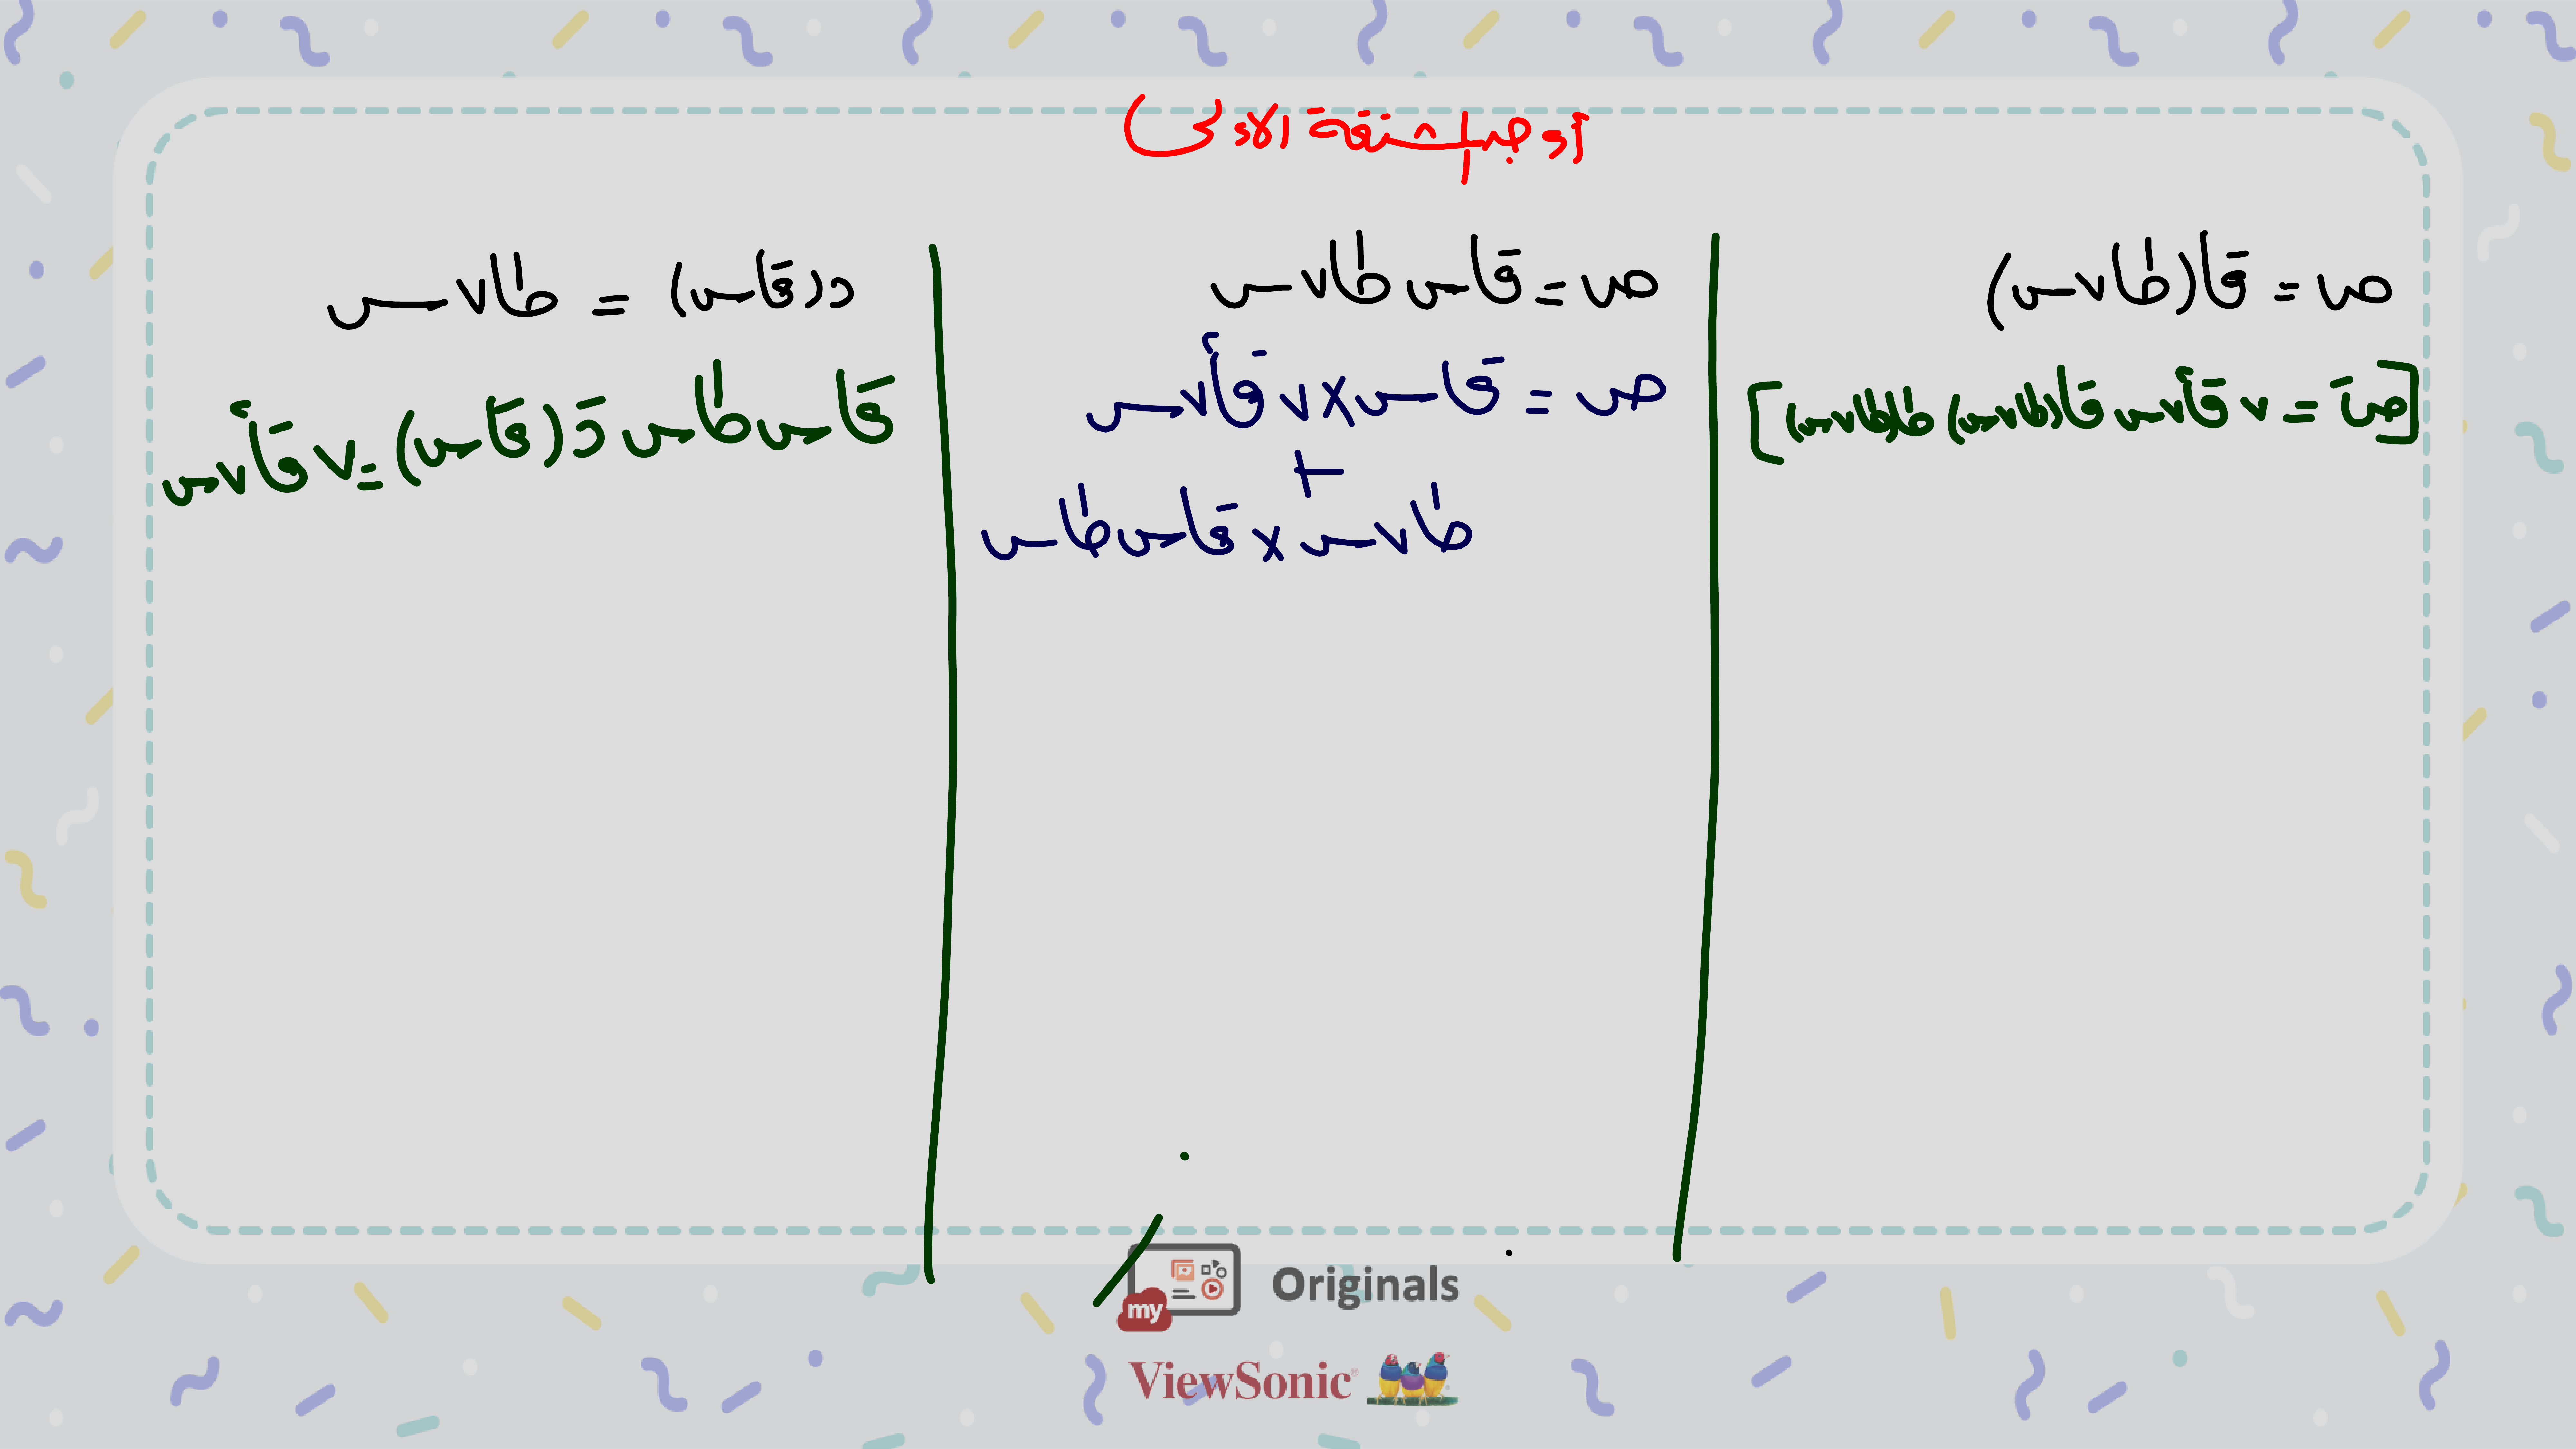 أوجد المشتقة الأولى)
ص = قا(طا٧س)
[صَ = ٧ قا٢ ٧س قا(طا٧س) طا(طا٧س)]
ص = قاس طا٧س
ص = قاس × ٧ قا٢ ٧س
+
طا٧س × قاس طاس
د(قاس) = طا٧س
قاس طاس دَ(قاس) = ٧ قا٢ ٧س
my Originals
ViewSonic